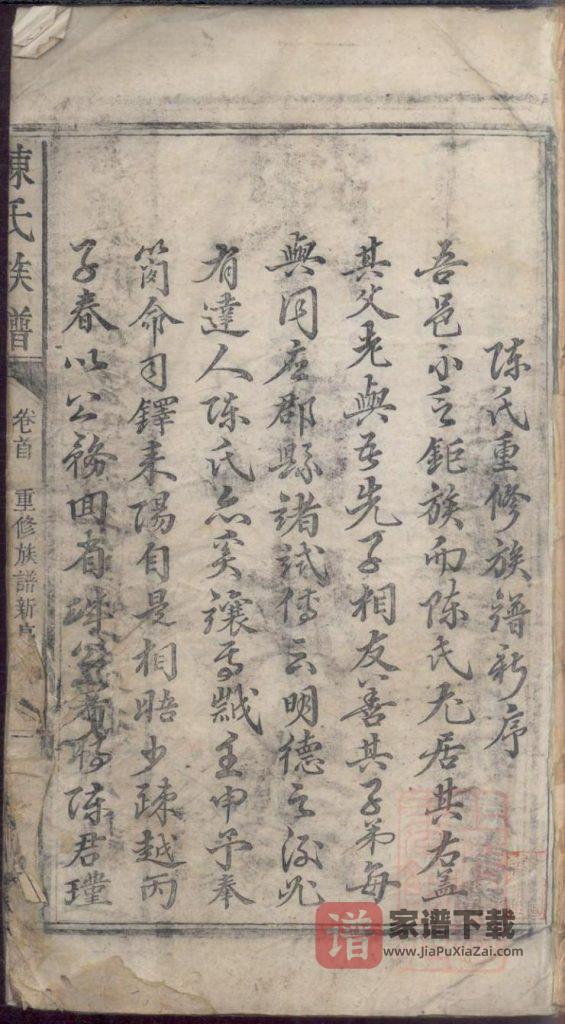 陈氏重修族譜新序
吾邑不乏鉅族而陈氏尤居其右盖
其父老與吾先子相友善其子弟每
與同应郡縣諸試傳云明德之後必
有達人陈氏亦奚讓焉歲壬申予奉
簡命司鐸耒陽自是相晤少疎越丙
子春以公務囬省垣陈君瓘
陳氏族譜
卷首
重修族譜新序
一
譜
家谱下载
www.JiaPuXiaZai.com